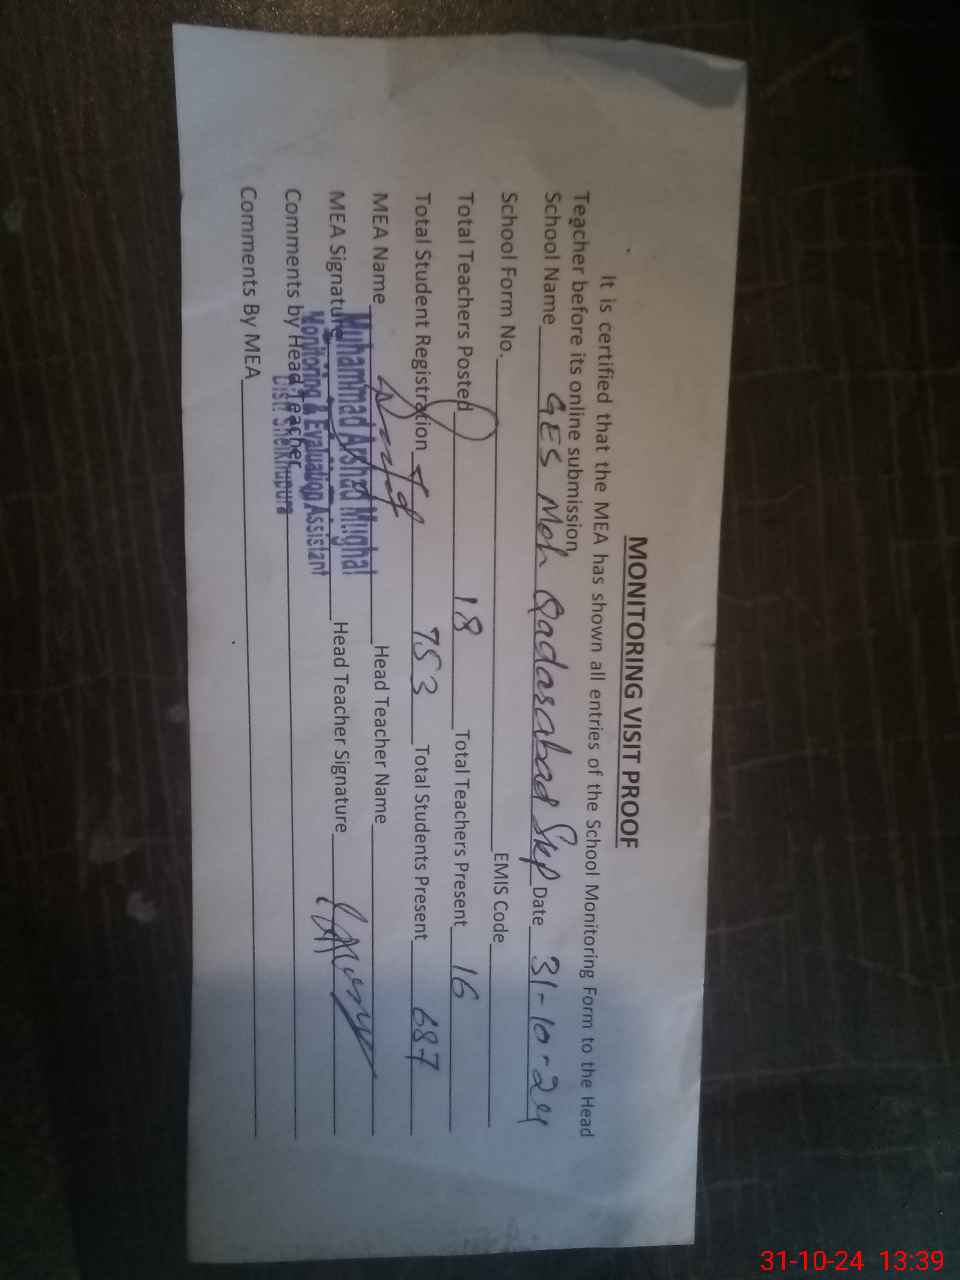 MONITORING VISIT PROOF
It is certified that the MEA has shown all entries of the School Monitoring Form to the Head
Teacher before its online submission
School Name GES Moh Qadarabad Skp Date 31-10-24
School Form No. EMIS Code
Total Teachers Posted 18 Total Teachers Present 16
Total Student Registration 753 Total Students Present 687
MEA Name Head Teacher Name
Muhammad Arshad Mughal
MEA Signature Head Teacher Signature
Monitoring & Evaluation Assistant
Comments by Head Teacher
Distt Sheikhupura
Comments By MEA
31-10-24 13:39